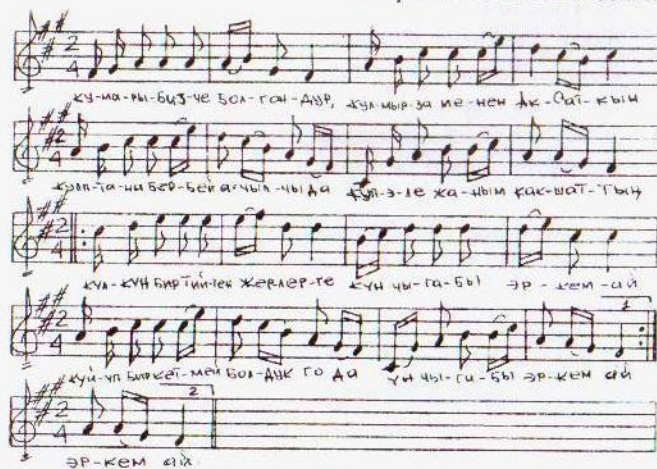 ку-ма-ры-биз-че бол-гон-дур, кул-мыр-за ме-нен Ак-Сат-кын
кулп-та-на бер-бей а-чыл-чы да күп-э-ле жа-ным как-шат-тың
күл-күн бир тий-ген жерлер-ге күн чы-га-бы эр-кем-ай 1
күй-үп бир кет-мей бол-дук го да үн чы-га-бы эр-кем ай
2
эр-кем ай.